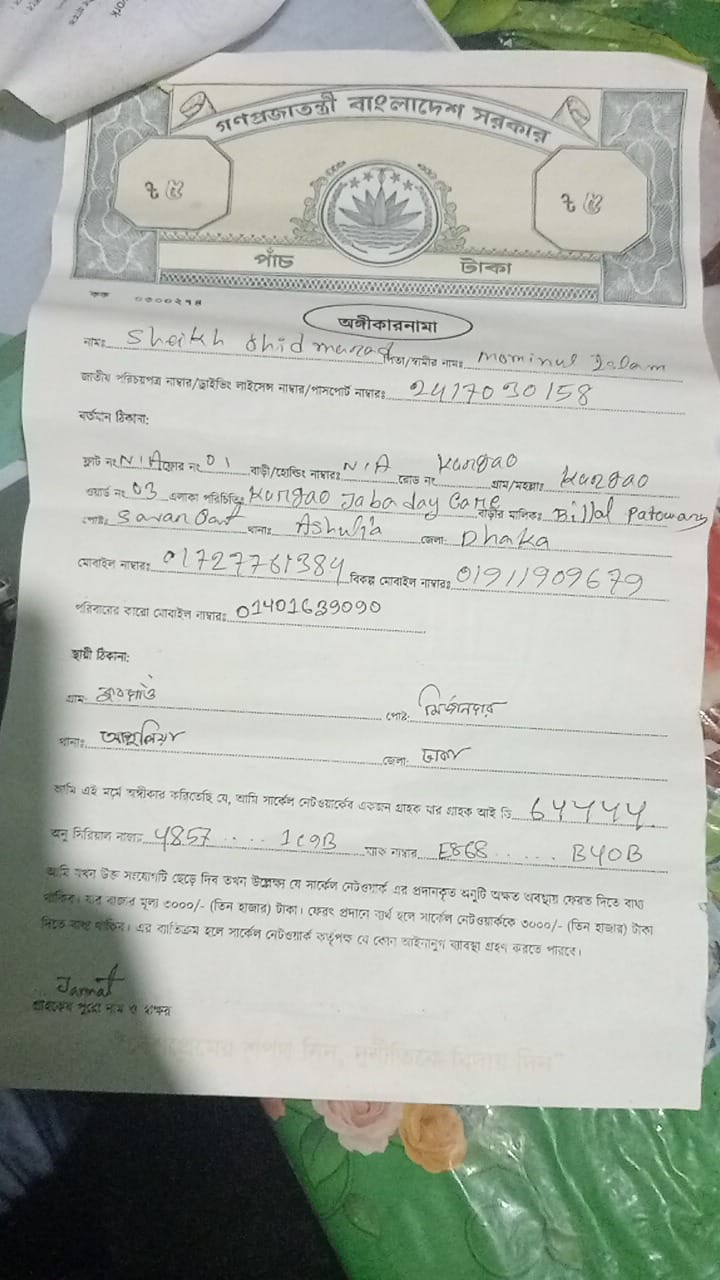 গণপ্রজাতন্ত্রী বাংলাদেশ সরকার
৳ ৫ ৳ ৫
পাঁচ টাকা
কক ০৩০০২৭৪
অঙ্গীকারনামা
নামঃ Sheikh Ohid পিতা/স্বামীর নামঃ Mominul Islam
জাতীয় পরিচয়পত্র নাম্বার/ড্রাইভিং লাইসেন্স নাম্বার/পাসপোর্ট নাম্বারঃ 2417030158
বর্তমান ঠিকানা:
ফ্লাট নং N/A ফ্লোর নং 01 বাড়ী/হোল্ডিং নাম্বারঃ N/A রোড নং Kungao গ্রাম/মহল্লাঃ Kungao
ওয়ার্ড নং 03 এলাকা পরিচিতিঃ Kungao বাড়ীর মালিকঃ Billal Patowary
পোষ্টঃ থানাঃ Ashulia জেলা: Dhaka
মোবাইল নাম্বারঃ 01727761384 বিকল্প মোবাইল নাম্বারঃ 01911909679
পরিবারের কারো মোবাইল নাম্বারঃ 01401639090
স্থায়ী ঠিকানা:
গ্রাম: পোষ্ট:
থানাঃ আশুলিয়া জেলা: ঢাকা
আমি এই মর্মে অঙ্গীকার করিতেছি যে, আমি সার্কেল নেটওয়ার্কের একজন গ্রাহক যার গ্রাহক আই ডি 64444
অনু সিরিয়াল নাম্বার 4857 .... 1C9B ম্যাক নাম্বার E868 ..... B40B
আমি যখন উক্ত সংযোগটি ছেড়ে দিব তখন উল্লেখ্য যে সার্কেল নেটওয়ার্ক এর প্রদানকৃত অনুটি অক্ষত অবস্থায় ফেরত দিতে বাধ্য
থাকিব। যার বাজার মূল্য ৩০০০/- (তিন হাজার) টাকা। ফেরৎ প্রদানে ব্যর্থ হলে সার্কেল নেটওয়ার্ককে ৩০০০/- (তিন হাজার) টাকা
দিতে বাধ্য থাকিব। এর ব্যতিক্রম হলে সার্কেল নেটওয়ার্ক কর্তৃপক্ষ যে কোন আইনানুগ ব্যবস্থা গ্রহণ করতে পারবে।
Jannat
গ্রাহকের পুরো নাম ও স্বাক্ষর